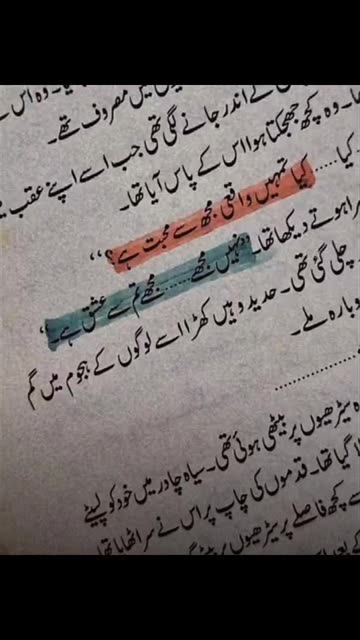 میں مصروف تھے۔ وہ اس
کے اندر جانے لگی تھی جب اسے اپنے عقب
۔ وہ کچھ جھجکتا ہوا اس کے پاس آیا تھا۔
کیا....... کیا تمہیں واقعی مجھ سے محبت ہے؟‘‘
ہوتے دیکھا تھا۔ ’’نہیں مجھے....... مجھے تم سے عشق ہے۔‘‘
چلی گئی تھی۔ حدید وہیں کھڑا اسے لوگوں کے ہجوم میں گم
دوبارہ ملے۔
................
سیڑھیوں پر بیٹھی ہوئی تھی۔ سیاہ چادر میں خود کو لپیٹے
گیا تھا۔ قدموں کی چاپ پر اس نے سر اٹھایا تھا
سے کچھ فاصلے پر سیڑھیوں پر